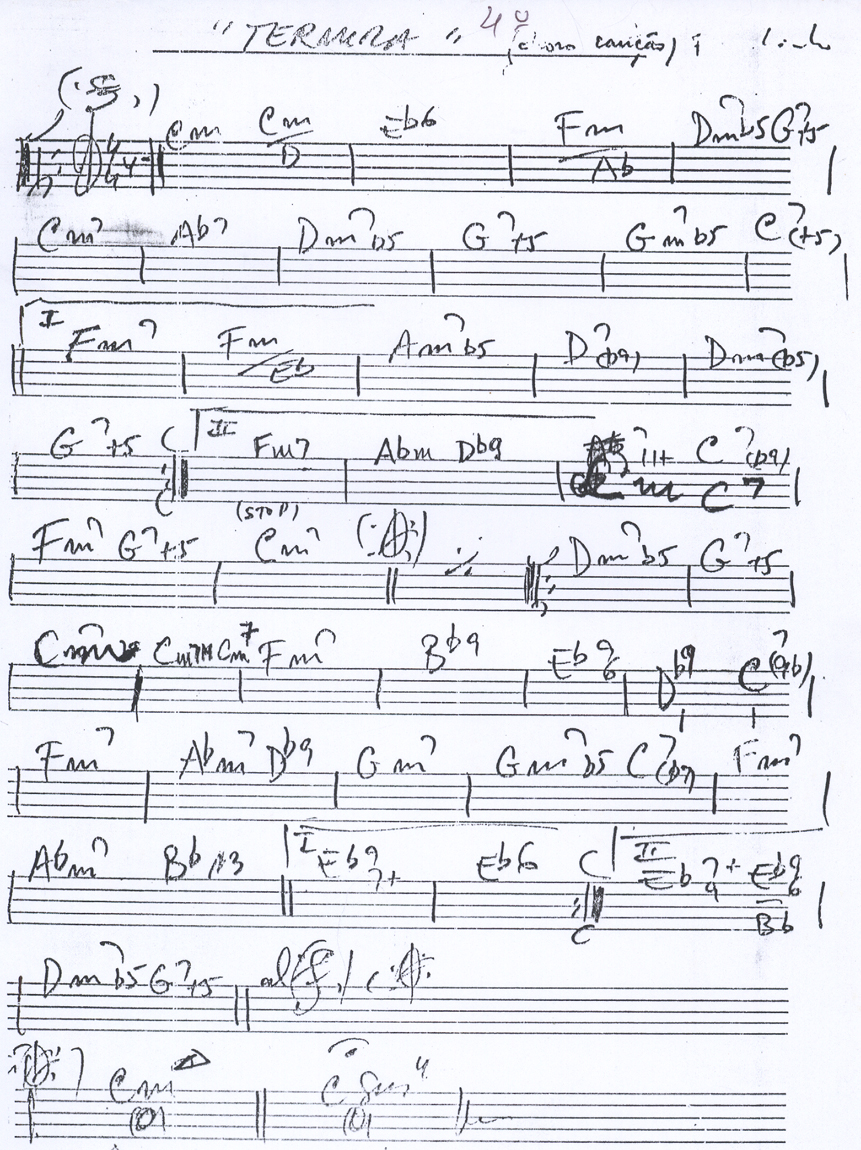 "TERNURA" 4º (choro canção)
Cm Cm/D Eb6 Fm/Ab Dm7b5 G7+5
Cm7 Ab7 Dm7b5 G7+5 Gm7b5 C7(+5)
I Fm7 Fm/Eb Am7b5 D7(b9) Dm7(b5)
G7+5 II Fm7 Abm Db9 C7(b9)
Cm C7
(STOP)
Fm7 G7+5 Cm7 Dm7b5 G7+5
Cm7M Cm7 Fm7 Bb9 Eb9/6 Db9
Fm7 Abm7 Db9 Gm7 Gm7b5 Fm7
Abm7 Bb13 I Eb9 7+ Eb6 II Eb7+ 9 Eb9/6 Bb
Dm7b5 G7+5 al
Cm C Sus4